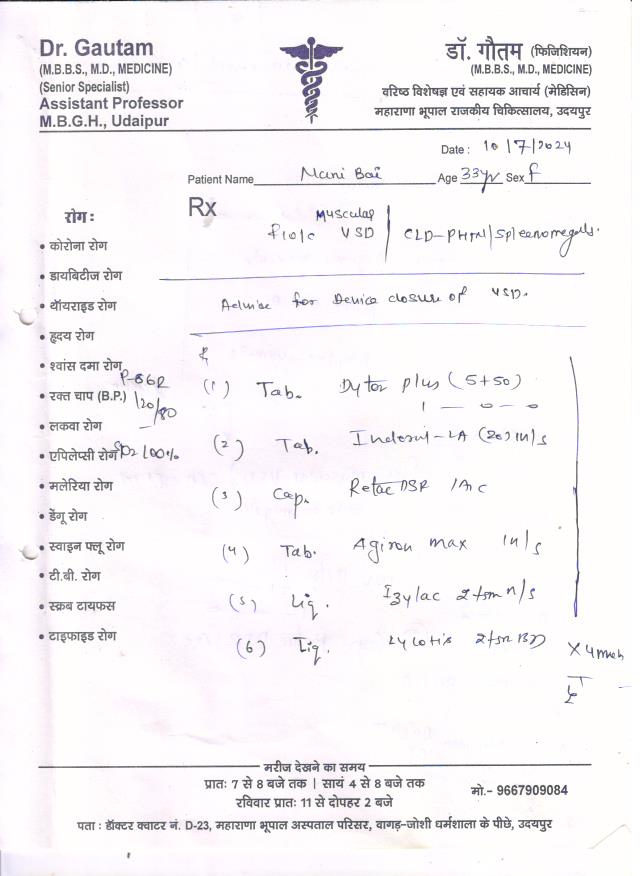 Dr. Gautam
(M.B.B.S., M.D., MEDICINE)
(Senior Specialist)
Assistant Professor
M.B.G.H., Udaipur
डॉ. गौतम (फिजिशियन)
(M.B.B.S., M.D., MEDICINE)
वरिष्ठ विशेषज्ञ एवं सहायक आचार्य (मेडिसिन)
महाराणा भूपाल राजकीय चिकित्सालय, उदयपुर
Date : 10/7/2024
Patient Name Mani Bai Age 33yr Sex F
Rx
Muscular
F/O/C VSD CLD-PHTN/Spleenomegaly.
Advise for Device closure of VSD.
रोग :
• कोरोना रोग
• डायबिटीज रोग
• थॉयराइड रोग
• हृदय रोग
• श्वांस दमा रोग
• रक्त चाप (B.P.) 120/80
• लकवा रोग
• एपिलेप्सी रोग SPO2 100%
• मलेरिया रोग
• डेंगू रोग
• स्वाइन फ्लू रोग
• टी.बी. रोग
• स्क्रब टायफस
• टाइफाइड रोग
(1) Tab. Dytor plus (5+50)
1 — 0 — 0
(2) Tab. Inderal-LA (20) 1n/s
(3) Cap. DSR 1AC
(4) Tab. max 1n/s
(5) Liq. Izylac 2tsm n/s
(6) Liq. 2tsm BD
मरीज देखने का समय
प्रातः 7 से 8 बजे तक | सायं 4 से 8 बजे तक
रविवार प्रातः 11 से दोपहर 2 बजे
मो.- 9667909084
पता : डॉक्टर क्वाटर नं. D-23, महाराणा भूपाल अस्पताल परिसर, वागड़-जोशी धर्मशाला के पीछे, उदयपुर